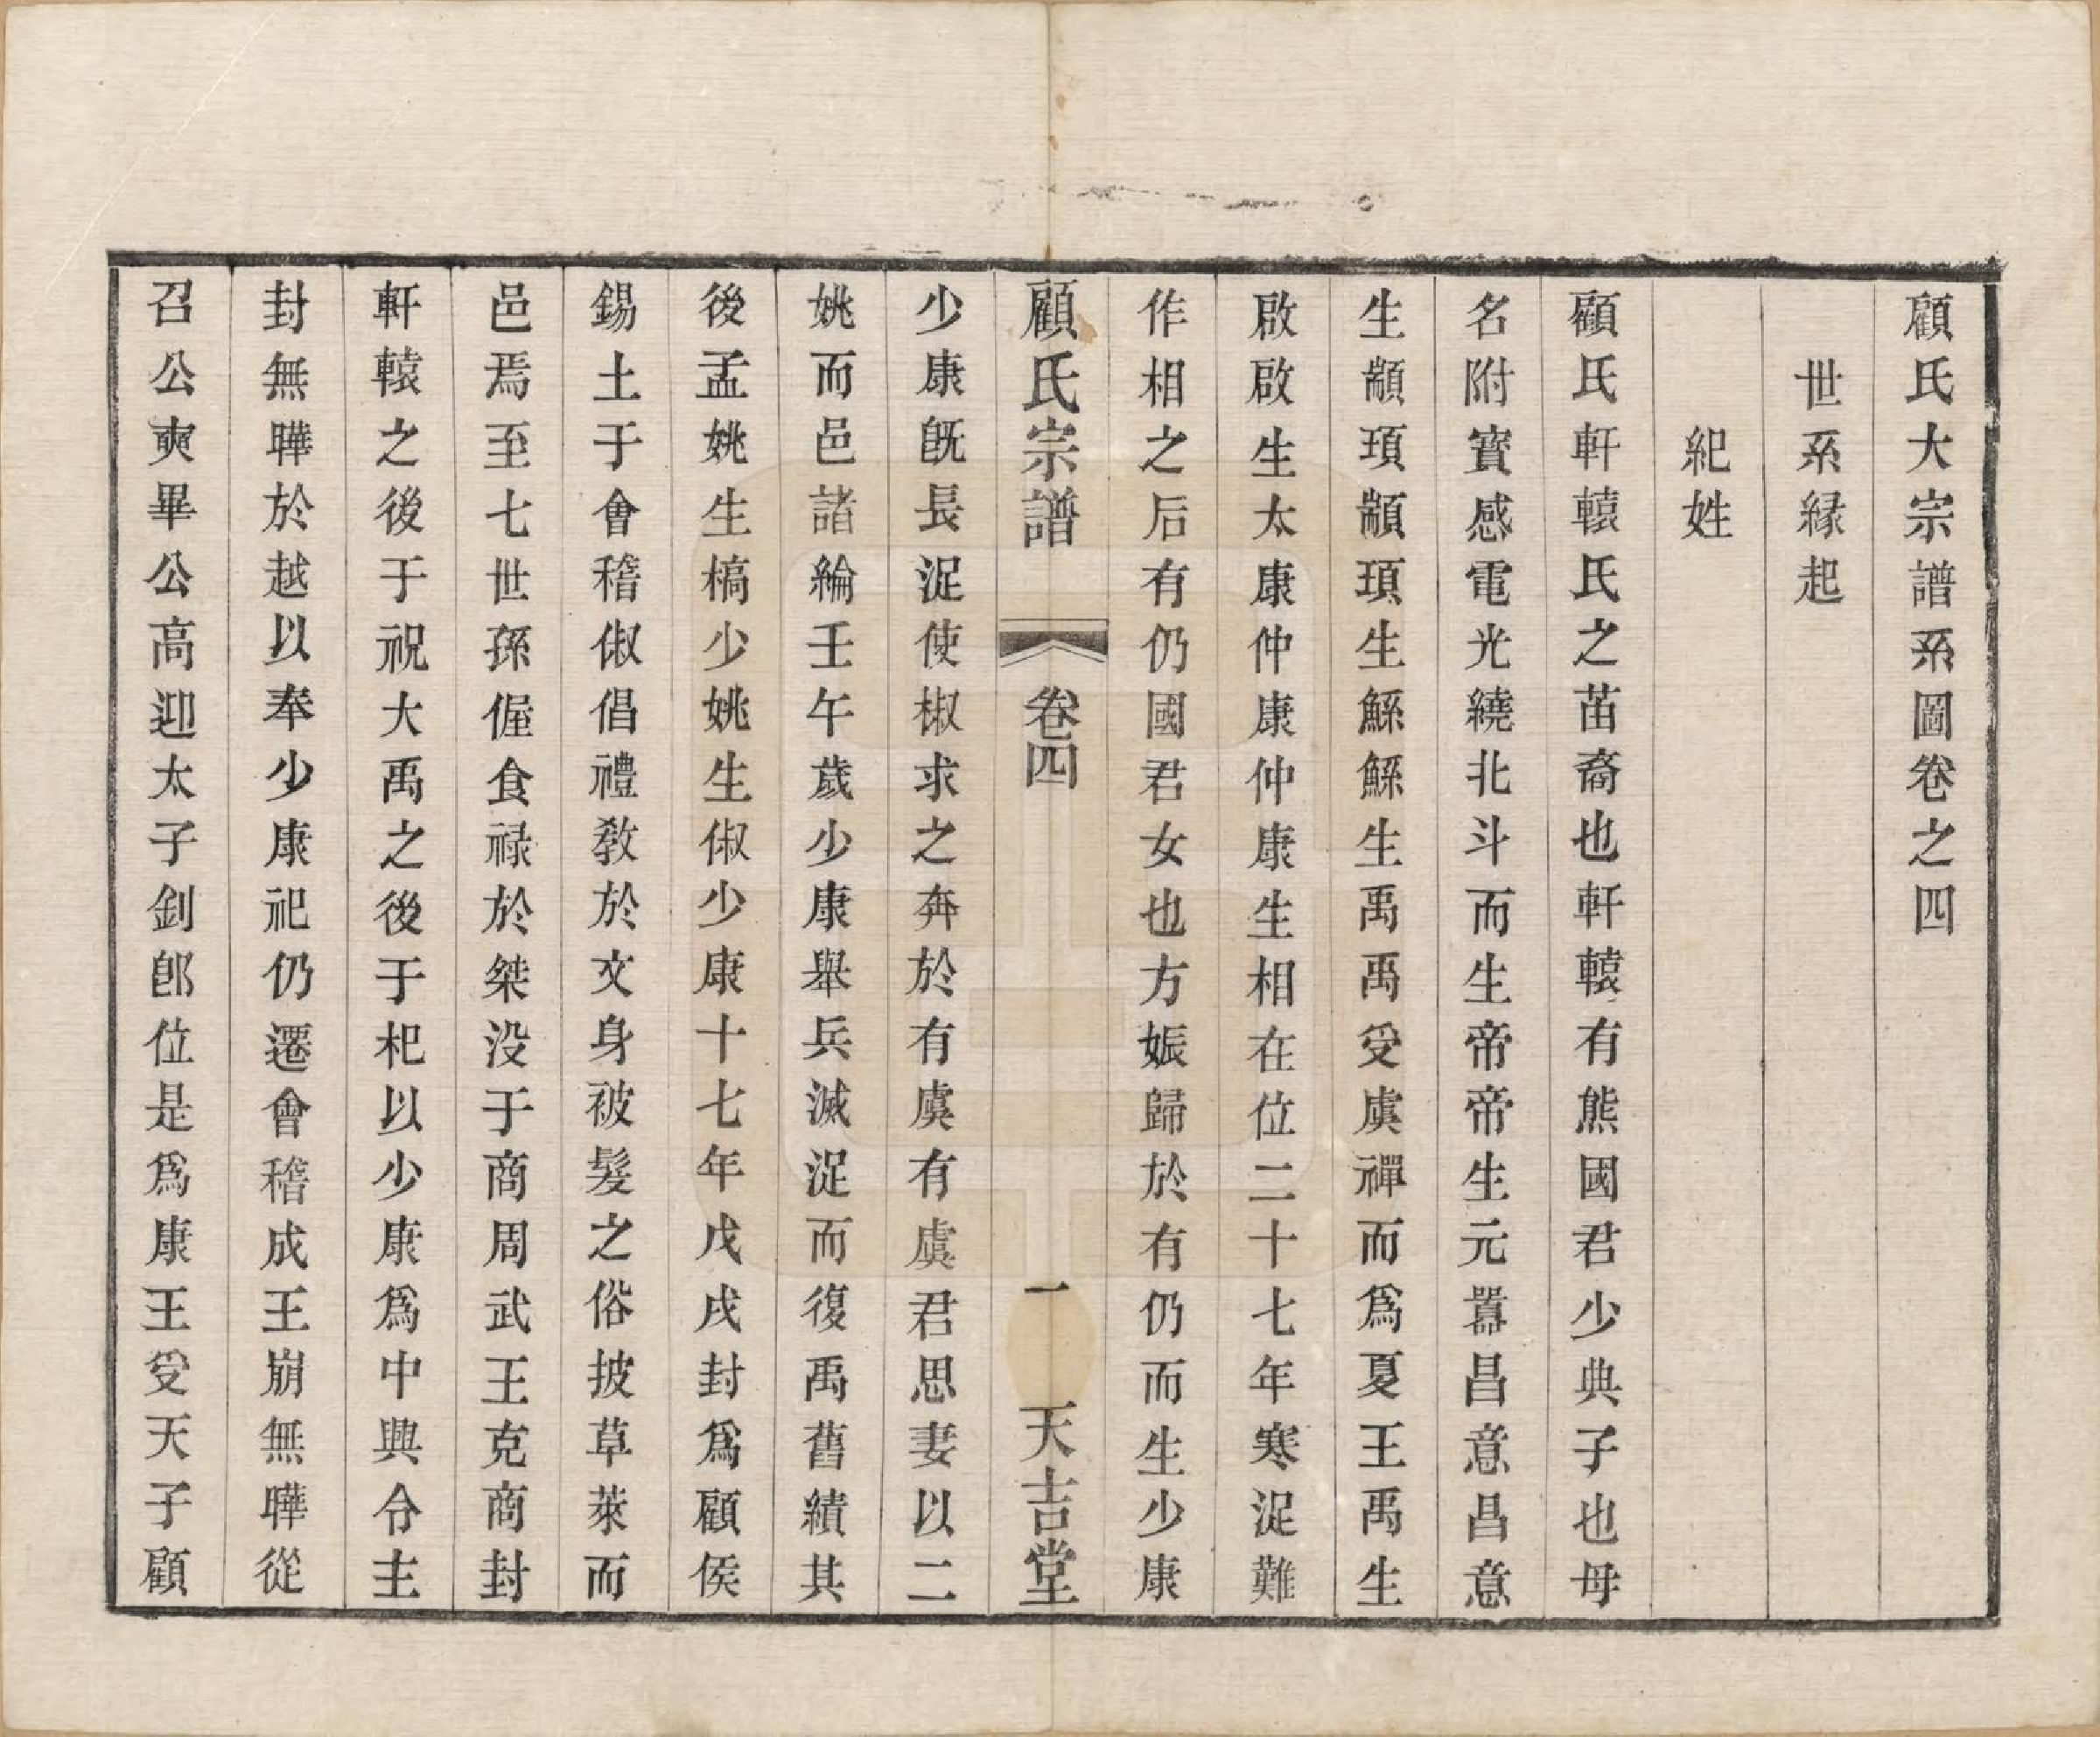 顧氏大宗譜系圖卷之四
世系緣起
紀姓
顧氏軒轅氏之苗裔也軒轅有熊國君少典子也母
名附寶感電光繞北斗而生帝帝生元囂昌意昌意
生顓頊顓頊生鯀鯀生禹禹受虞禪而爲夏王禹生
啟啟生太康仲康仲康生相在位二十七年寒浞難
作相之后有仍國君女也方娠歸於有仍而生少康
顧氏宗譜
卷四
一
天吉堂
少康既長浞使椒求之奔於有虞有虞君思妻以二
姚而邑諸綸壬午歲少康舉兵滅浞而復禹舊績其
後孟姚生槁少姚生俶少康十七年戊戌封爲顧侯
錫土于會稽俶倡禮敎於文身被髮之俗披草萊而
邑焉至七世孫偓食祿於桀没于商周武王克商封
軒轅之後于祝大禹之後于杞以少康爲中興令主
封無曄於越以奉少康祀仍遷會稽成王崩無曄從
召公奭畢公高迎太子釗卽位是爲康王受天子顧